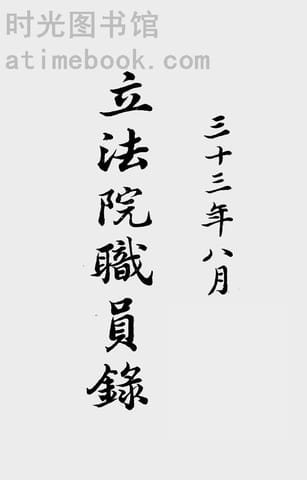 时光图书馆
atimebook.com
三十三年八月
立法院職員錄